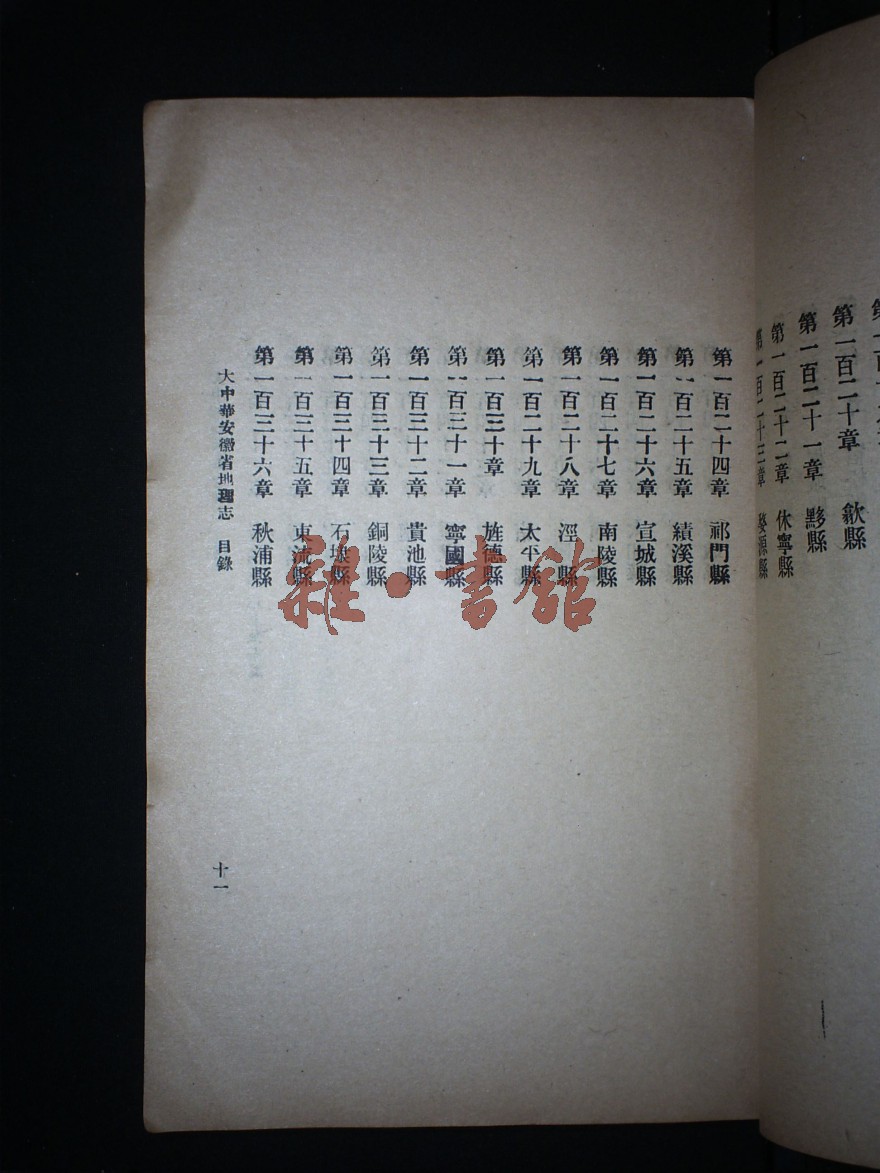 第一百二十章　歙縣
第一百二十一章　黟縣
第一百二十二章　休寧縣
第一百二十三章　婺源縣
第一百二十四章　祁門縣
第一百二十五章　績溪縣
第一百二十六章　宣城縣
第一百二十七章　南陵縣
第一百二十八章　涇縣
第一百二十九章　太平縣
第一百三十章　旌德縣
第一百三十一章　寧國縣
第一百三十二章　貴池縣
第一百三十三章　銅陵縣
第一百三十四章　石埭縣
第一百三十五章　東流縣
第一百三十六章　秋浦縣
大中華安徽省地理志　目錄
十一
雜·書館